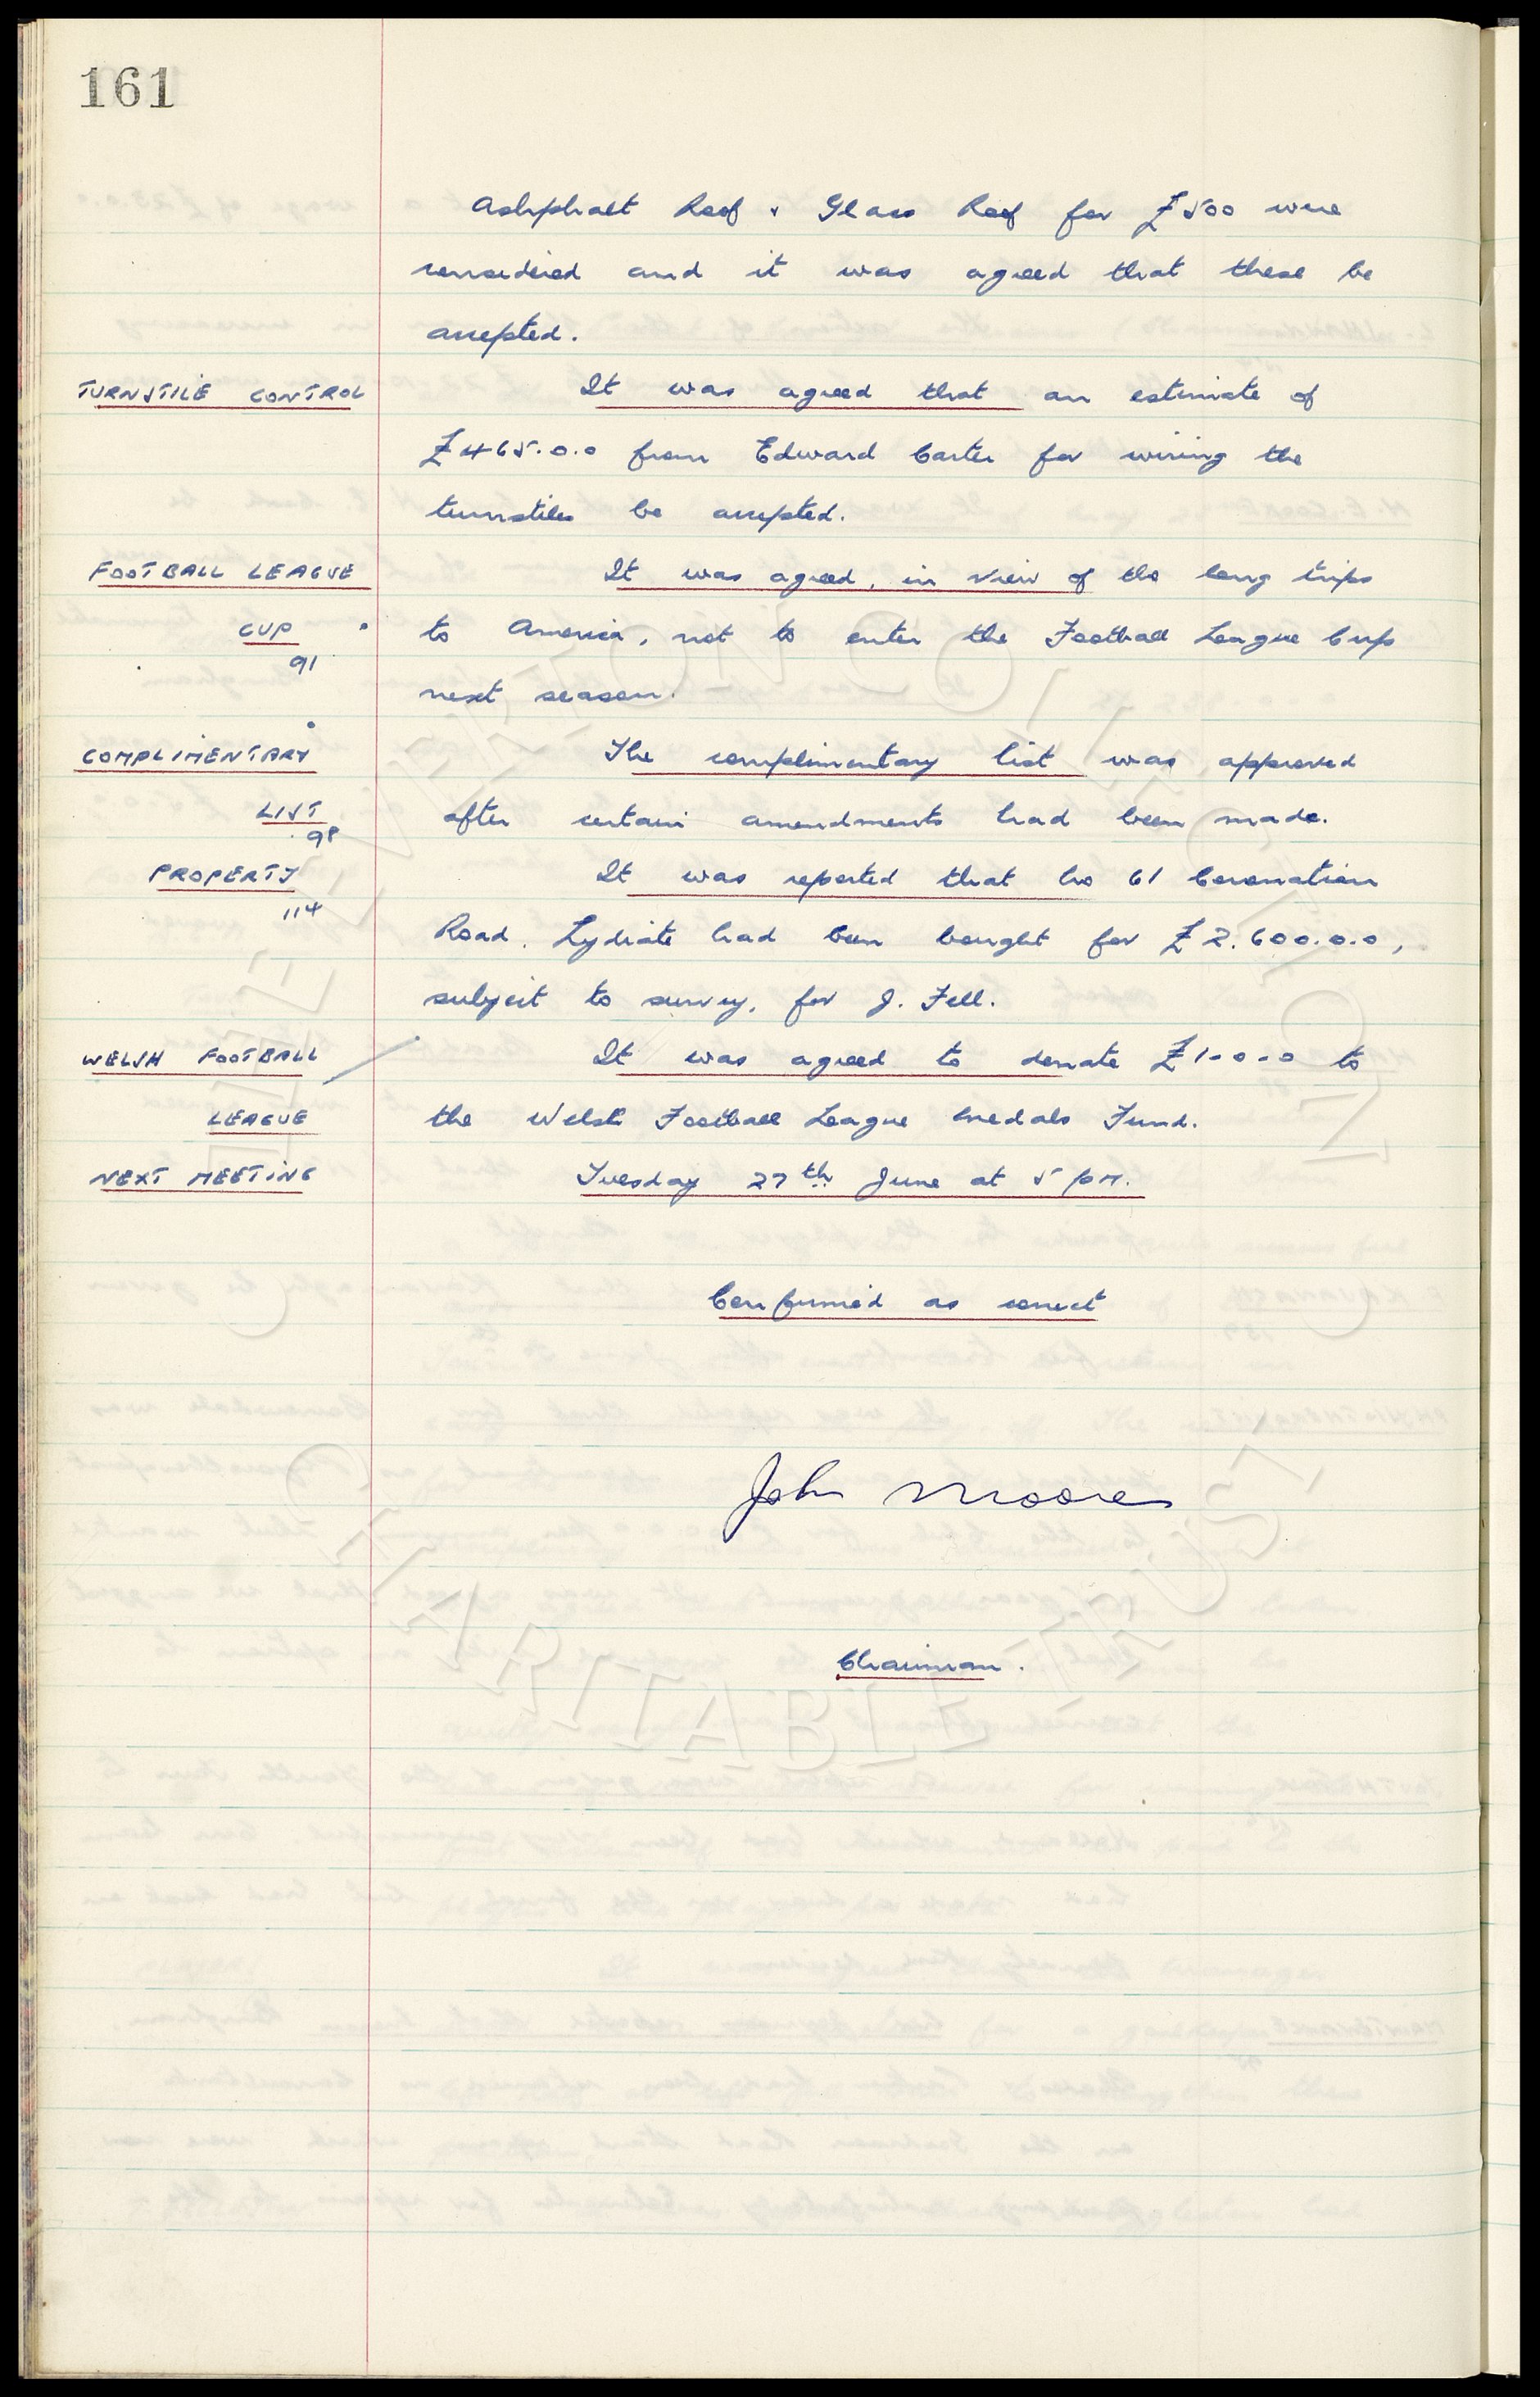 161
Ashphalt Roof & Glass Roof for £500 were
considered and it was agreed that these be
accepted.
TURNSTILE CONTROL It was agreed that an estimate of
£465.0.0 from Edward Carter for wiring the
turnstiles be accepted.
FOOTBALL LEAGUE It was agreed, in view of the long trips
CUP to America, not to enter the Football League Cup
91
next season.
COMPLIMENTARY The complimentary list was approved
LIST after certain amendments had been made.
98
PROPERTY It was reported that No 61 Coronation
114
Road, Lydiate had been bought for £2.600.0.0,
subject to survey, for J. Fell.
WELSH FOOTBALL It was agreed to donate £1-0-0 to
LEAGUE the Welsh Football League Medals Fund.
NEXT MEETING Tuesday 27th June at 5 pm.
Confirmed as correct
John Moores
Chairman.